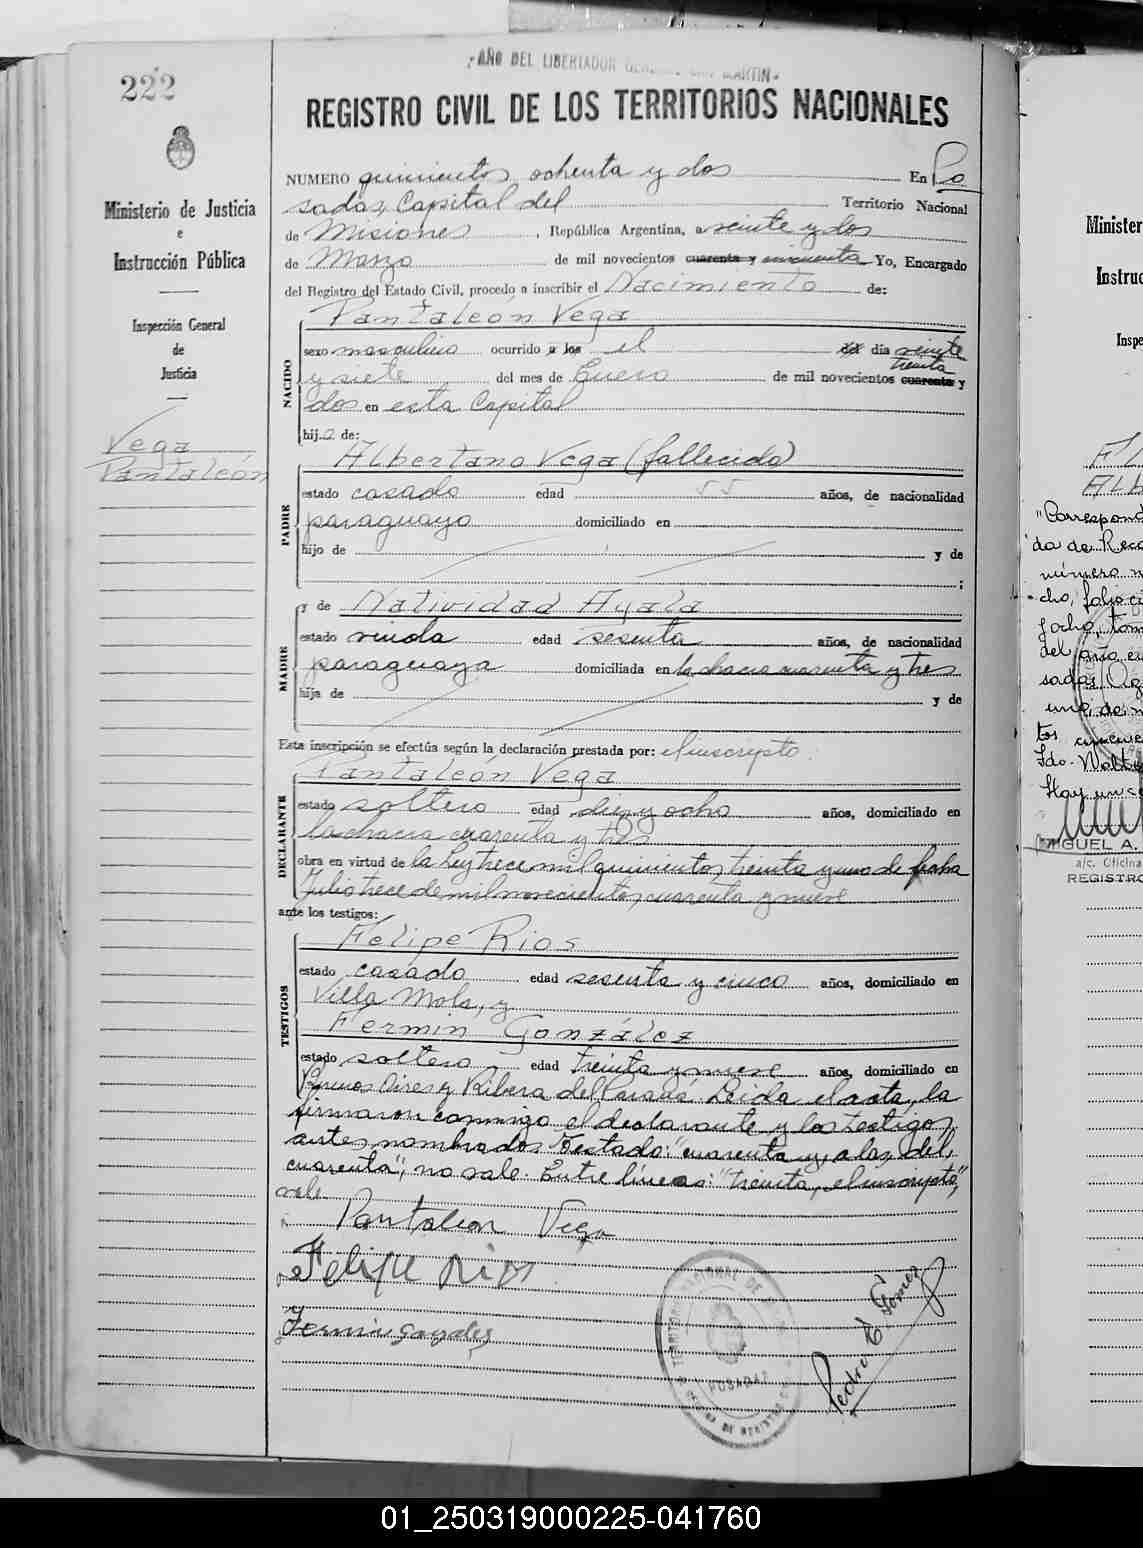 222
"AÑO DEL LIBERTADOR GENERAL SAN MARTIN"
REGISTRO CIVIL DE LOS TERRITORIOS NACIONALES
Ministerio de Justicia
e
Instrucción Pública
Inspección General
de
Justicia
Vega
Pantaleón
NUMERO quinientos ochenta y dos En Po
sadas, Capital del Territorio Nacional
de Misiones, República Argentina, a veinte y dos
de Marzo de mil novecientos cuarenta y cincuenta Yo, Encargado
del Registro del Estado Civil, procedo a inscribir el Nacimiento de:
NACIDO
Pantaleón Vega
sexo masculino ocurrido a los el del día veinte
treinta
y siete del mes de Enero de mil novecientos cuarenta y
dos en esta Capital
hijo de:
PADRE
Albertano Vega (fallecido)
estado casado edad 55 años, de nacionalidad
paraguayo domiciliado en
hijo de y de
;
MADRE
y de Natividad Ayala
estado viuda edad sesenta años, de nacionalidad
paraguaya domiciliada en la chacra cuarenta y tres
hija de y de
Esta inscripción se efectúa según la declaración prestada por: el inscripto
DECLARANTE
Pantaleón Vega
estado soltero edad diez y ocho años, domiciliado en
la chacra cuarenta y tres
obra en virtud de la Ley trece mil quinientos treinta y uno de fecha
Julio trece de mil novecientos cuarenta y nueve
ante los testigos:
TESTIGOS
Felipe Rios
estado casado edad sesenta y cinco años, domiciliado en
Villa Mola, y
Fermin González
estado soltero edad treinta y nueve años, domiciliado en
Buenos Aires y Ribera del Paraná. Leida el acta, la
firmaron conmigo el declarante y los testigos
antes nombrados. Testado: "cuarenta y, a los, del,
cuarenta", no vale. Entre líneas: "treinta, el inscripto",
vale.
Pantaleon Vega
Felipe Rios
Fermin Gonzales
Pedro E. Gomez
POSADAS
Minister
Instruc
Inspe
"Correspond
da de Reco
número m
cho, folio ci
tom
del año
sadas,
une, de
tos
Hay un se
MIGUEL A.
a/c. Oficina
REGISTRO
01_250319000225-041760